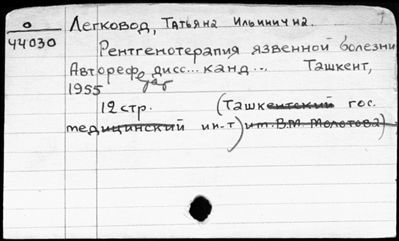 О Легковод, Татьяна Ильинична.
44030 Рентгенотерапия язвенной болезни
Автореф. дисс... канд... Ташкент,
1955
12 стр. (Ташкентский гос.
медицинский ин-т) им. В.М. Молотова)